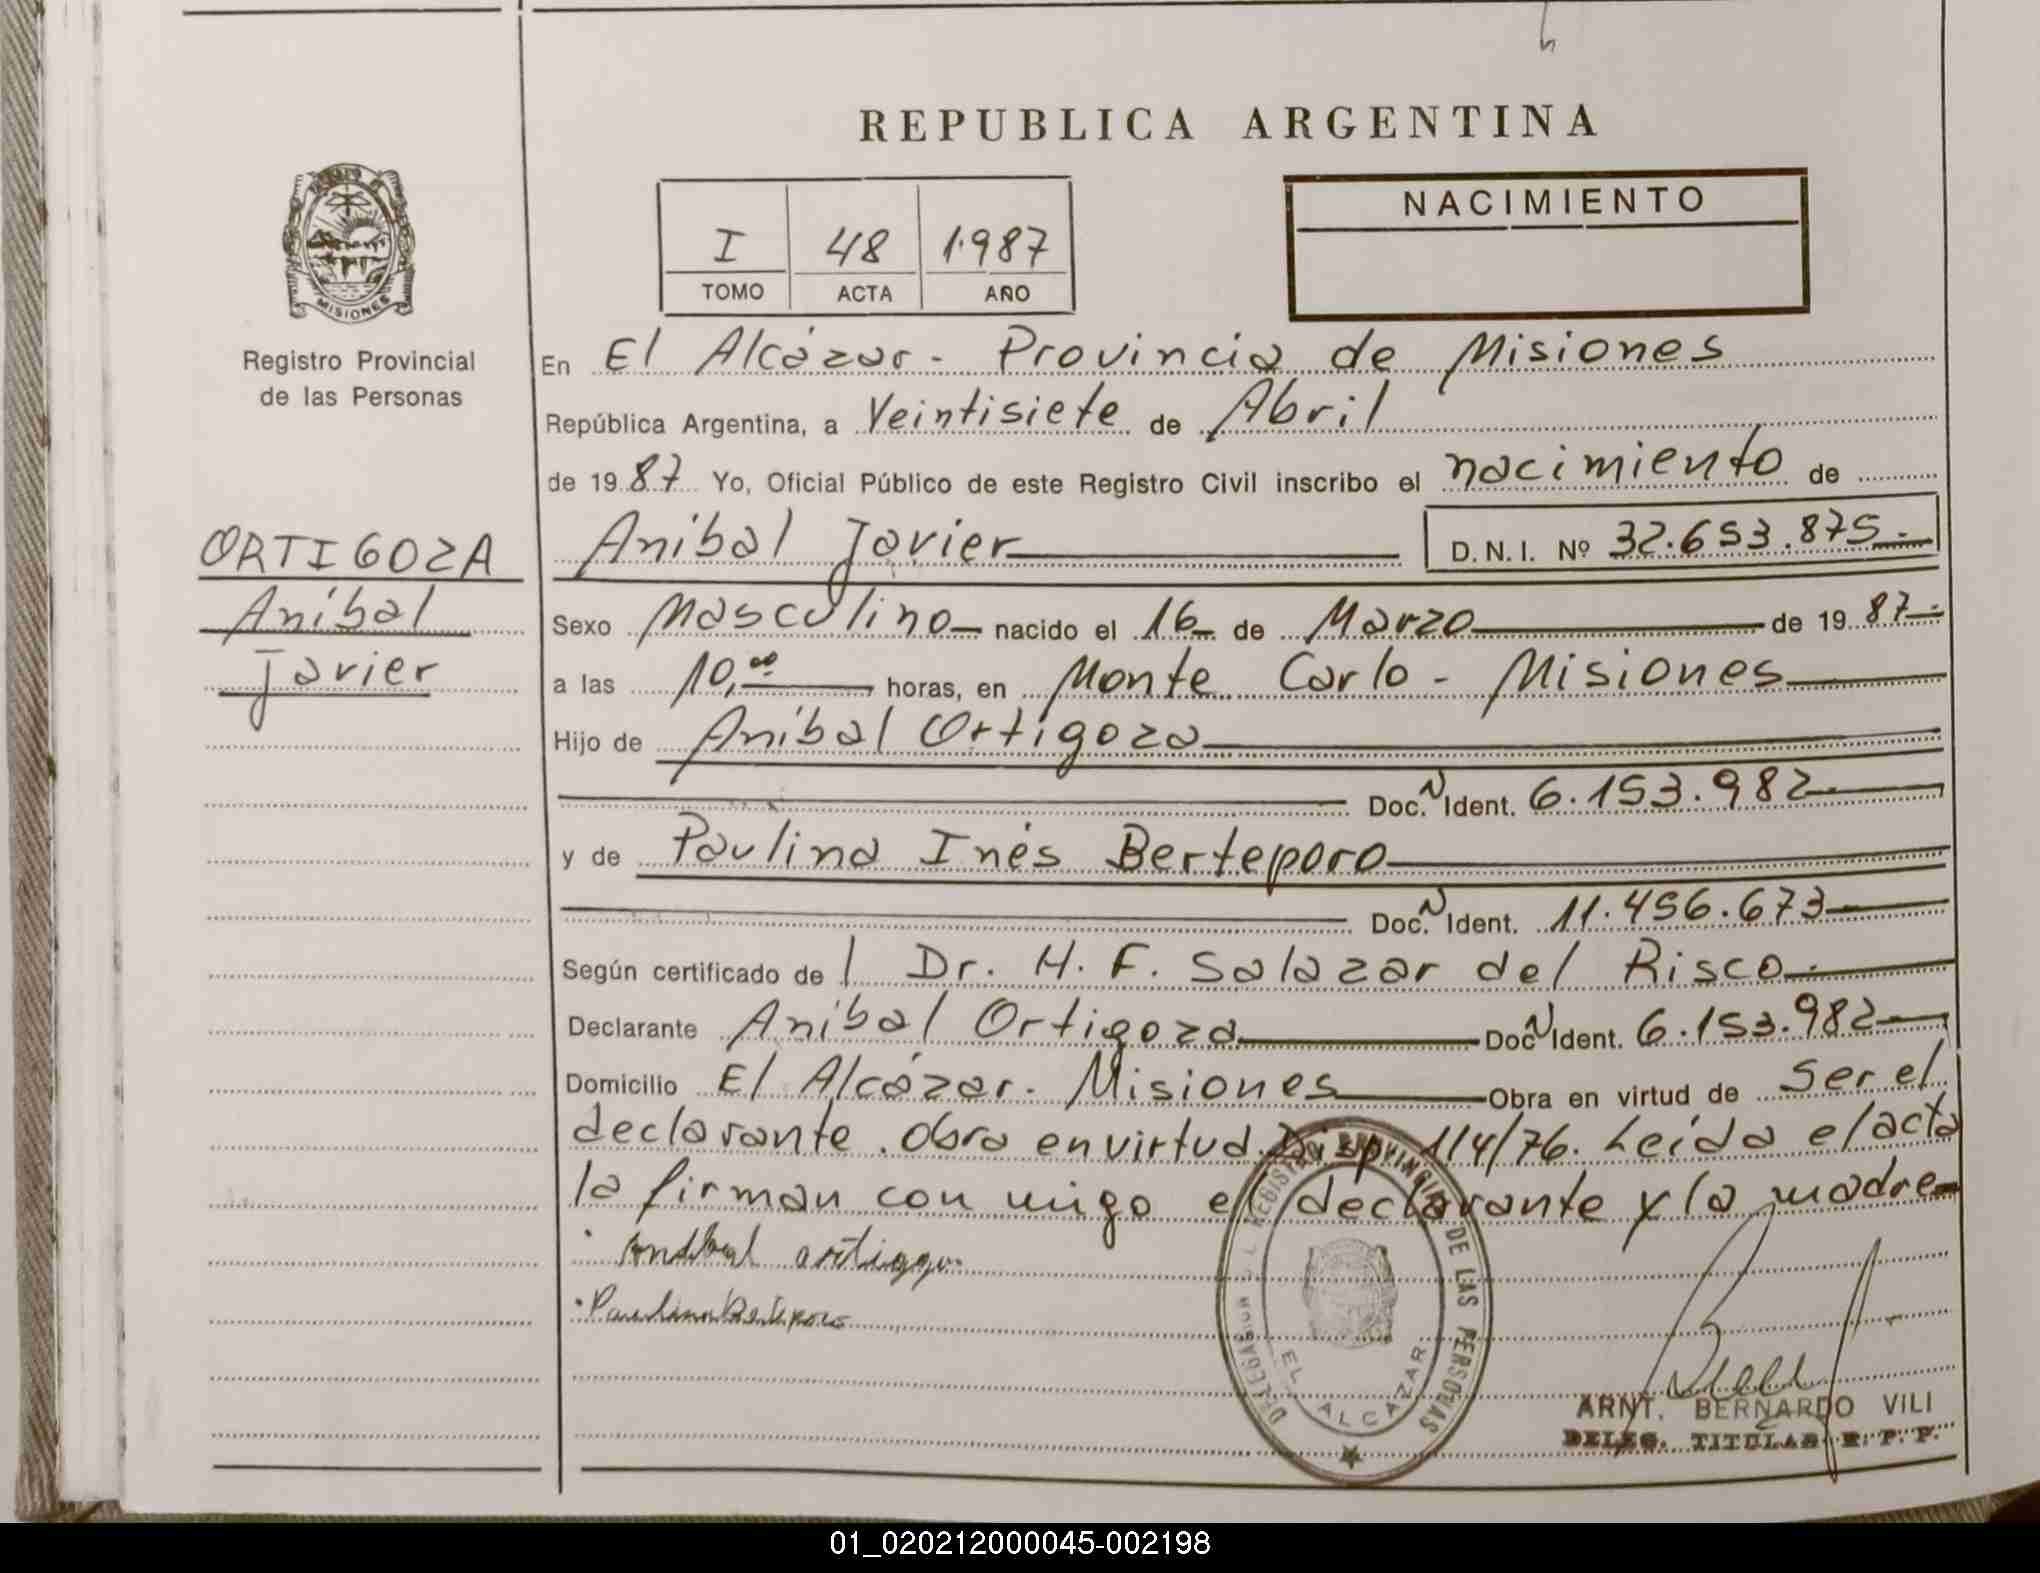 REPUBLICA ARGENTINA
NACIMIENTO
I 48 1.987
TOMO ACTA AÑO
MISIONES
Registro Provincial
de las Personas
En El Alcázar - Provincia de Misiones
República Argentina, a Veintisiete de Abril
de 19 87 Yo, Oficial Público de este Registro Civil inscribo el nacimiento de
Aníbal Javier D. N. I. Nº 32.653.875.-
ORTIGOZA
Aníbal
Javier
Sexo Masculino nacido el 16 de Marzo de 19 87.-
a las 10,00 horas, en Monte Carlo - Misiones
Hijo de Aníbal Ortigoza
Doc. Ident. 6.153.982
y de Paulina Inés Berteporo
Doc. Ident. 11.456.673
Según certificado de l Dr. H. F. Salazar del Risco.
Declarante Aníbal Ortigoza Doc Ident. 6.153.982
Domicilio El Alcázar. Misiones Obra en virtud de Ser el
declarante. Obra en virtud Disp. 114/76. Leída el acta
la firman con migo el declarante y la madre
Paulina Berteporo
DELEGACION REGISTRO PROVINCIAL DE LAS PERSONAS
EL ALCAZAR
ARNT. BERNARDO VILI
DELEG. TITULAR R. P. P.
01_020212000045-002198